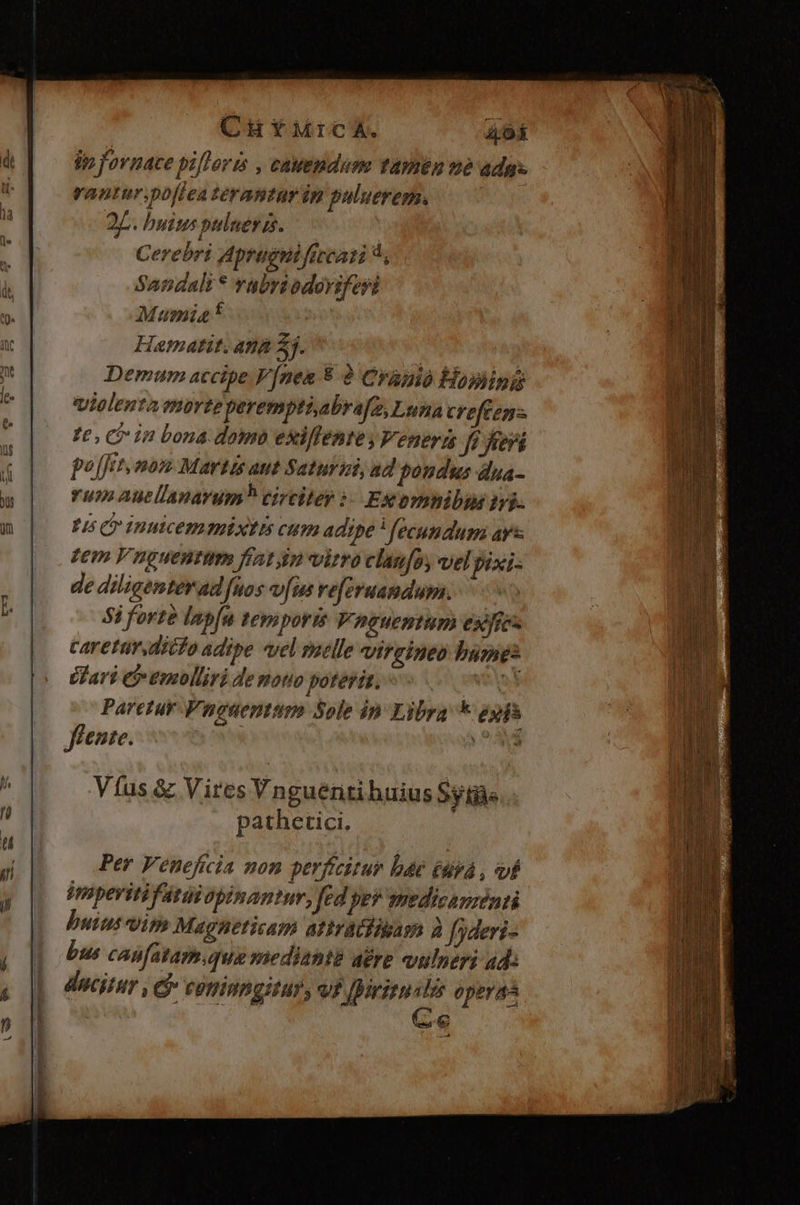 CHYMICA. 401
in fornace pistoris , cauendum tamen nè adu-
rantur,postea terantur in puluerem.
♃. huius pulueris.
Cerebri Aprugni siccati ᵈ,
Sandali ᵉ rubri odoriferi
Mumiæ ᶠ
Hæmatit. ana ℥j.
Demum accipe Vsneæ ᵍ è Cranio Hominis
violenta morte perempti,abrasæ, Luna crescen-
te, & in bona domo existente, Veneris si fieri
possit, non Martis aut Saturni, ad pondus dua-
rum auellanarum ʰ circiter :. Ex omnibus tri-
tis & inuicem mixtis cum adipe ⁱ secundum ar-
tem Vnguentum fiat in vitro clauso, vel pixi-
de diligenter ad suos vsus reseruandum.
Si fortè lapsu temporis Vnguentum exsic-
caretur,dicto adipe vel melle virgineo hume-
ctari & emolliri de nouo poterit.
Paretur Vnguentum Sole in Libra ᵏ exi-
stente.
Vsus & Vires Vnguenti huius Sym-
pathetici.
Per Veneficia non perficitur hæc cura, vt
imperiti fatui opinantur, sed per medicamenti
huius vim Magneticam attractiuam à syderi-
bus causatam,quæ mediante aëre vulneri ad-
ducitur , & coniungitur, vt spiritualis opera-
Cc